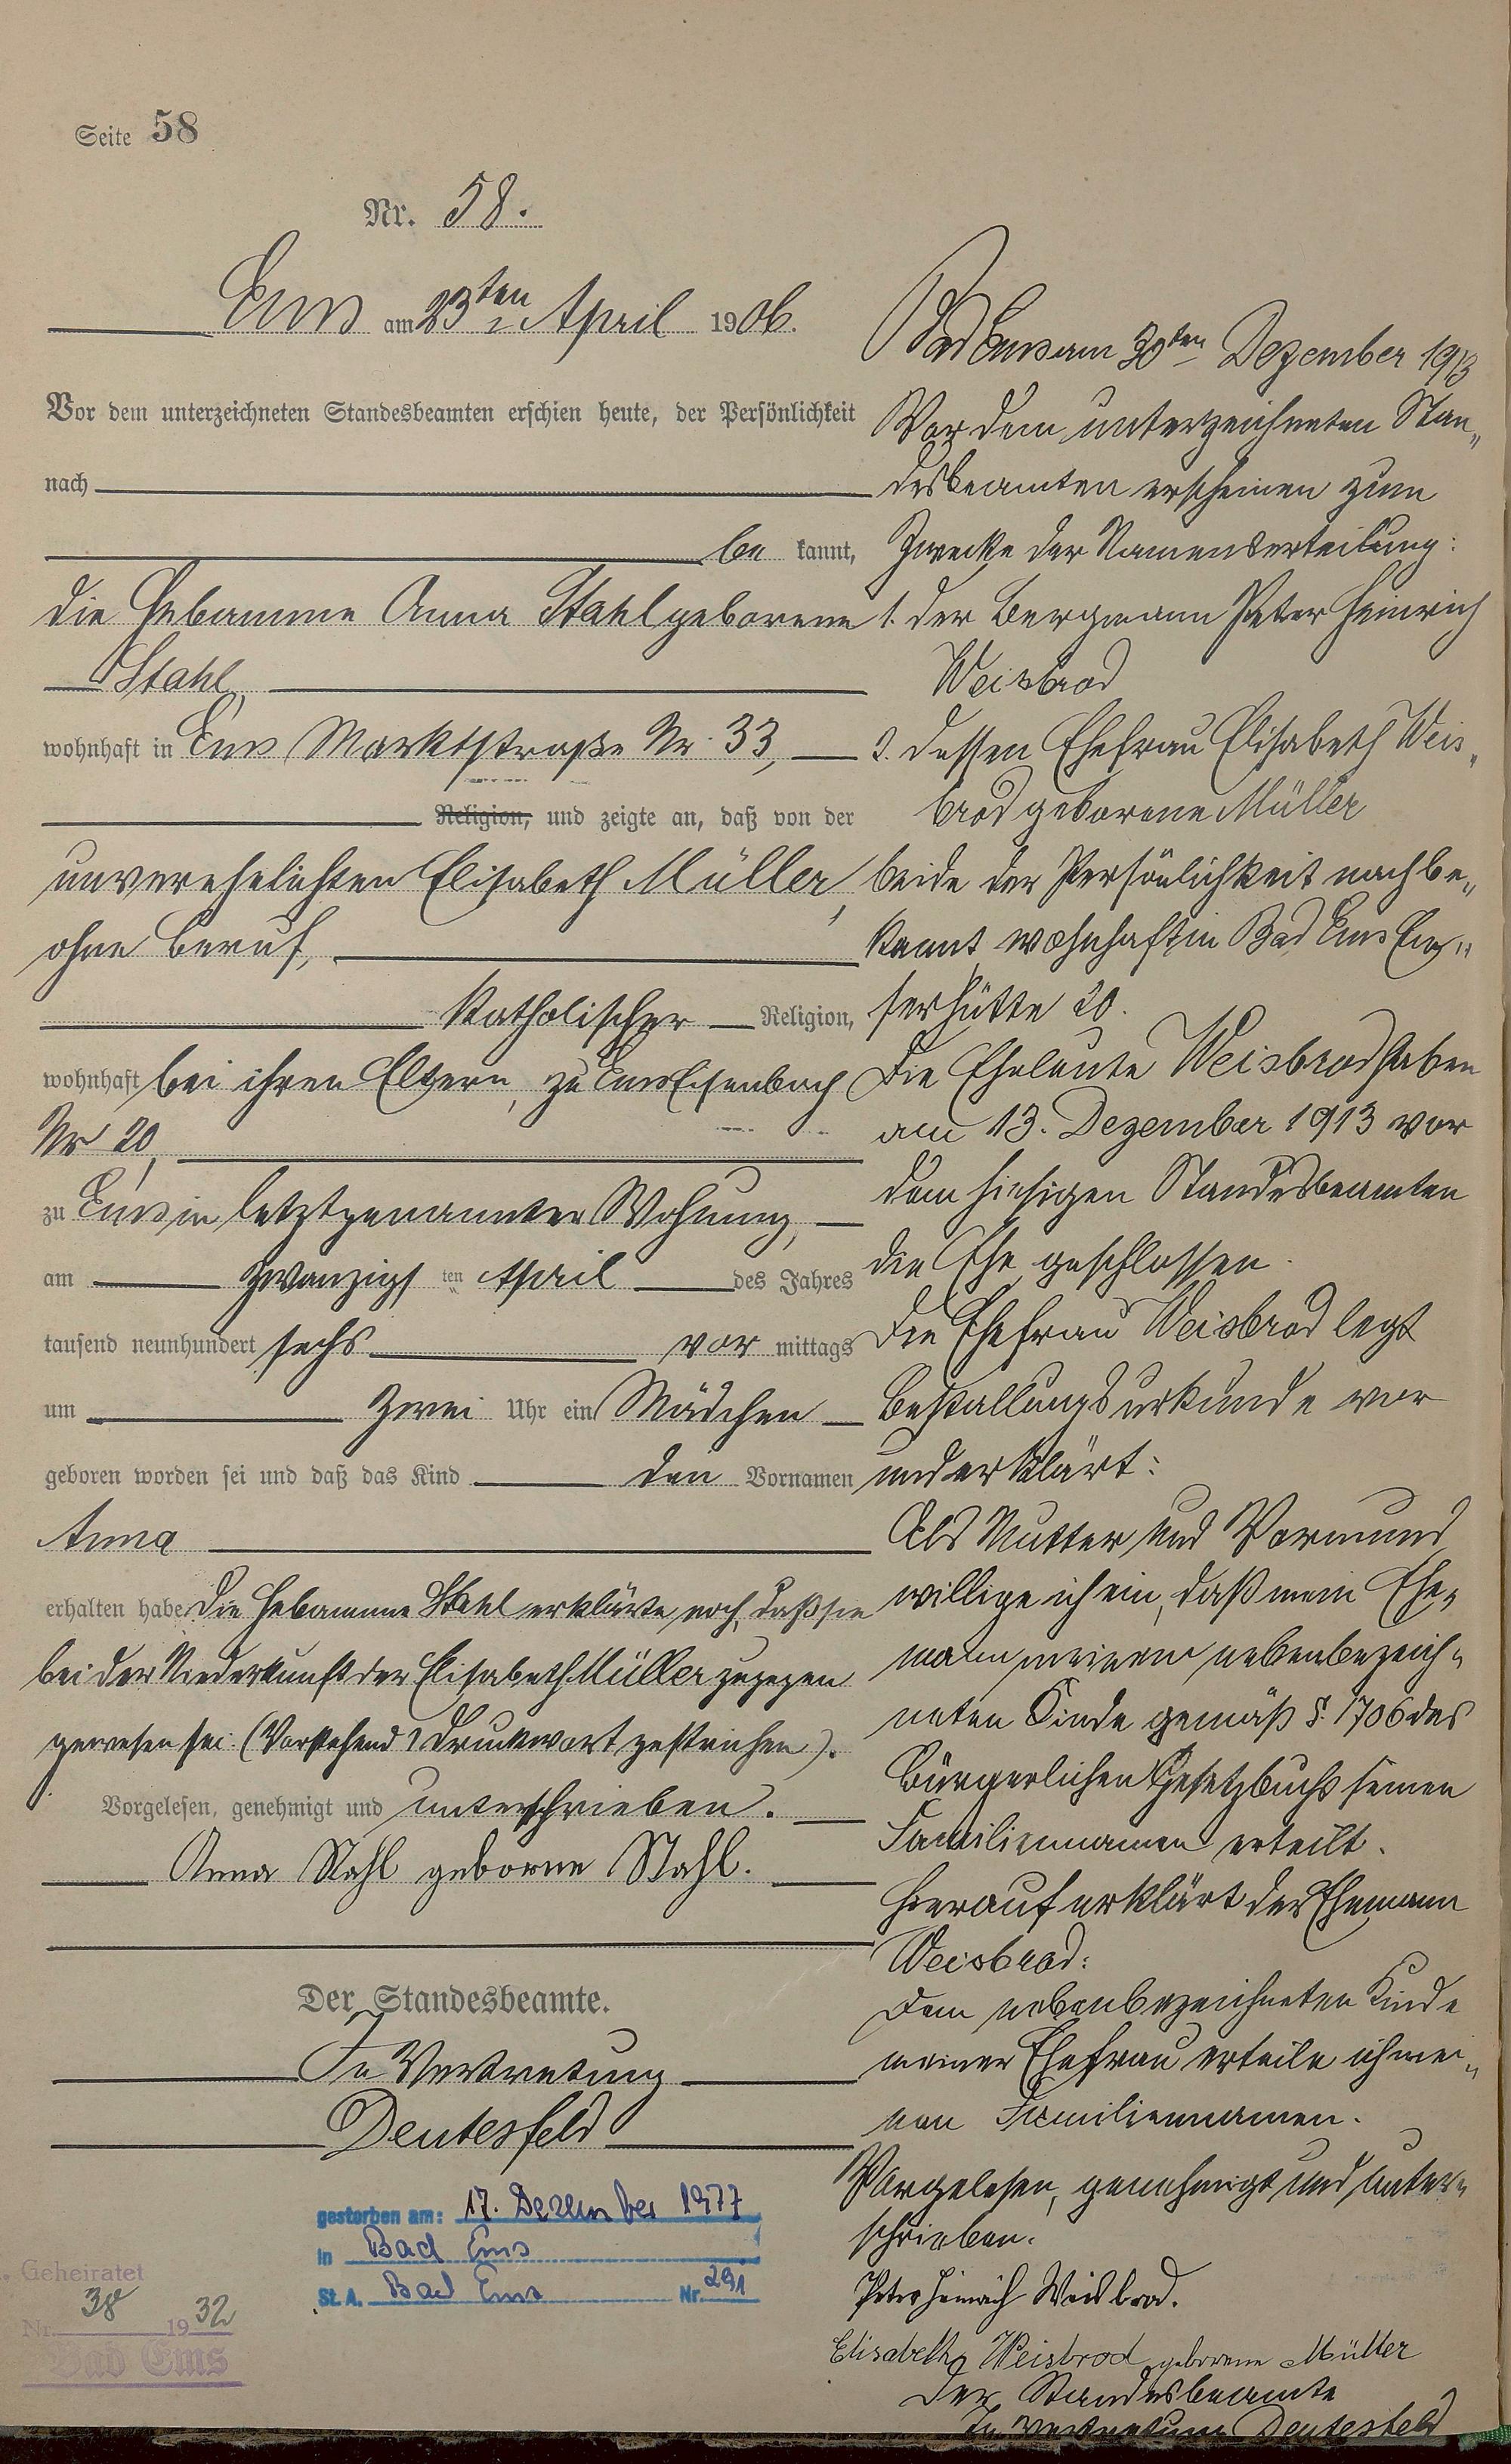 Seite 58
Nr. 58.
Ems am 23ten April 1906.
Vor dem unterzeichneten Standesbeamten erschien heute, der Persönlichkeit
nach
be kannt,
die Hebamme Anna Stahl geborene
Stahl,
wohnhaft in Ems Marktstraße Nr. 33,
Religion, und zeigte an, daß von der
unverehelichten Elisabeth Müller,
ohne Beruf,
katholischer Religion,
wohnhaft bei ihren Eltern, zu Ems Eisenbach
Nr 20,
zu Ems in letztgenannter Wohnung,
am zwanzigsten April des Jahres
tausend neunhundert sechs vor mittags
um zwei Uhr ein Mädchen
geboren worden sei und daß das Kind den Vornamen
Anna
erhalten habe. Die Hebamme Stahl erklärte noch, daß sie
bei der Niederkunft der Elisabeth Müller zugegen
gewesen sei. (Vorstehend 1 Druckwort gestrichen).
Vorgelesen, genehmigt und unterschrieben.
Anna Stahl geborne Stahl.
Der Standesbeamte.
In Vertretung
Deutesfeld
gestorben am: 17. Dezember 1977
in Bad Ems
St. A. Bad Ems Nr. 291
Geheiratet
Nr. 38 1932
Bad Ems
Bad Ems am 30ten Dezember 1913
Vor dem unterzeichneten Stan„
desbeamten erscheinen zum
Zwecke der Namenserteilung:
1. der Bergmann Peter Heinrich
Weisbrod
2. dessen Ehefrau Elisabeth Weis„
brod geborene Müller
beide der Persönlichkeit nach be„
kannt wohnhaft in Bad Ems Em„
serhütte 20.
Die Eheleute Weisbrod haben
am 13. Dezember 1913 vor
dem hiesigen Standesbeamten
die Ehe geschlossen.
Die Ehefrau Weisbrod legt
Bestallungsurkunde vor
und erklärt:
Als Mutter und Vormund
willige ich ein, daß mein Ehe„
mann meinem nebenbezeich„
neten Kinde gemäß §. 1706 des
Bürgerlichen Gesetzbuchs seinen
Familiennamen erteilt.
Hierauf erklärt der Ehemann
Weisbrod:
Dem nebenbezeichneten Kinde
meiner Ehefrau erteile ich mei„
nen Familiennamen.
Vorgelesen, genehmigt und unter„
schrieben.
Peter Heinrich Weisbrod.
Elisabeth Weisbrod geborene Müller
Der Standesbeamte
In Vertretung Deutesfeld